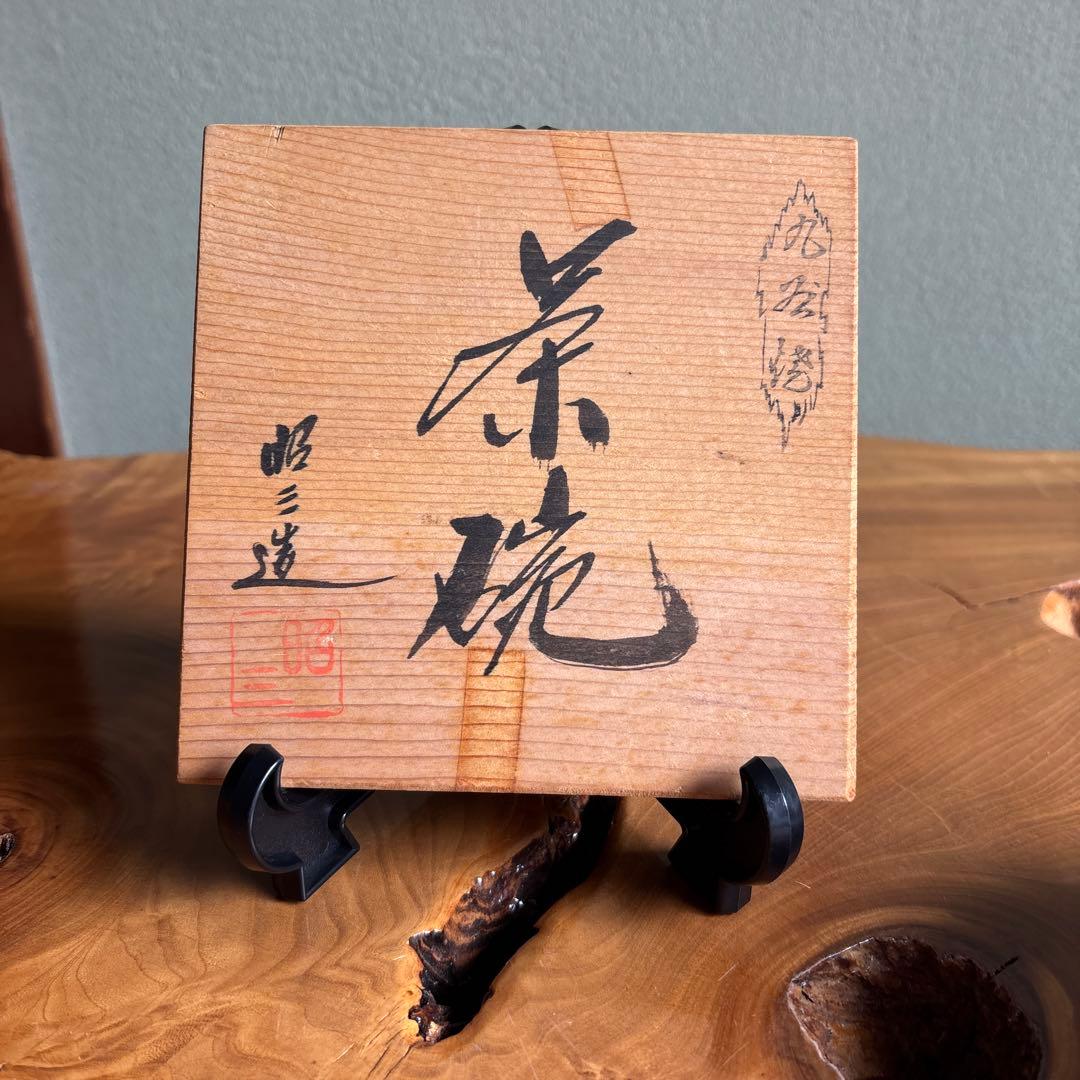 九谷焼
茶碗
昭三造
昭三